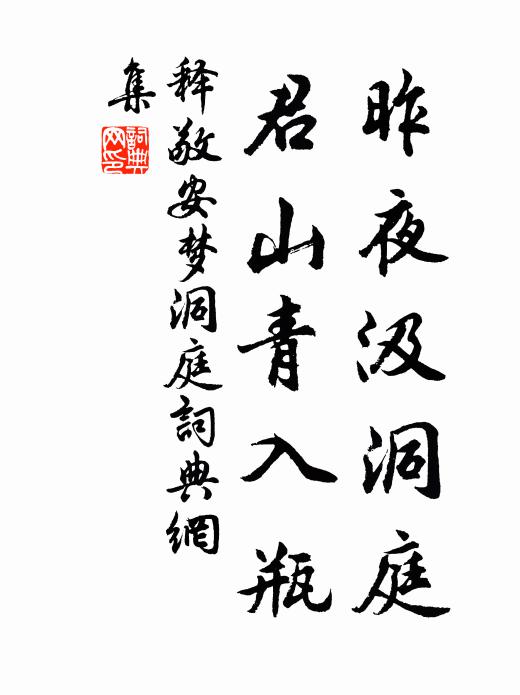 昨夜汲洞庭
君山青入瓶
释敬安梦洞庭詞典網
集
詞典网印